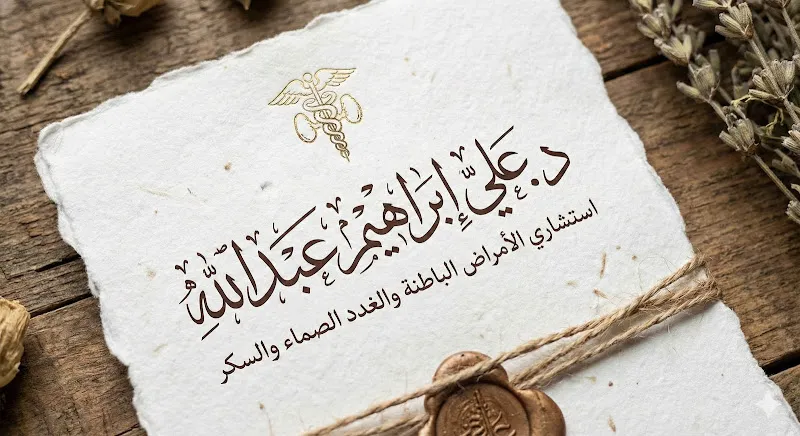 د. عَلِيّ إِبْرَاهِيْمْ عَبْدَاللَّهِ
استشاري الأمراض الباطنة والغدد الصماء والسكر